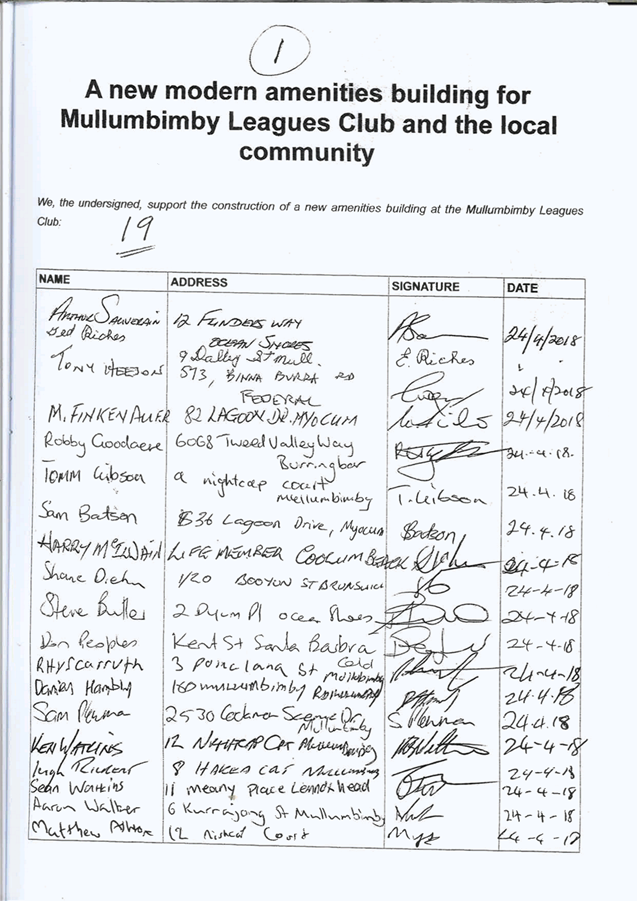 1
A new modern amenities building for
Mullumbimby Leagues Club and the local
community
We, the undersigned, support the construction of a new amenities building at the Mullumbimby Leagues
Club: 19
NAME ADDRESS SIGNATURE DATE
12 FLINDERS WAY 24/4/2018
OCEAN SHORES
Ged Riches 9 Dalley St Mull. E. Riches
TONY 573, BINNA BURRA RD
FEDERAL 24/4/2018
M. FINKENAUER 82 LAGOON DR. MYOCUM 24/4/2018
Robby Goodaere 6068 Tweed Valley Way 24-4-18.
Burringbar
TOMM Gibson a nightcap court T. Gibson 24.4.18
mullumbimby
Sam Batson 36 Lagoon Drive, Myocum Batson 24.4.18
HARRY McILWAIN LIFE MEMBER COOLUM BEACH 24-4-18
Shane Diehm 1/20 BOOYUN ST BRUNSWICK 24-4-18
Steve Butler 2 Dylum Pl ocean Shoes 24-4-18
Don Peoples Kent St Santa Basbra 24-4-18
RHYS CARRUTH 3 Poinciana St 24-4-18
Mullumbimby
Damien Hambly 160 mullumbimby 24.4.18
Sam 2530 Coolamon Scenic Dr, 24.4.18
Mullumbimby
KEN WATKINS 12 NIGHTCAP CRT Mullumbimby 24-4-18
8 HAKEA CRT Mullumbimby 24-4-18
Sean Watkins 11 meany place Lennox head 24-4-18
Aaron Walker 6 Kurrajong St Mullumbimby 24-4-18
Matthew 12 Court